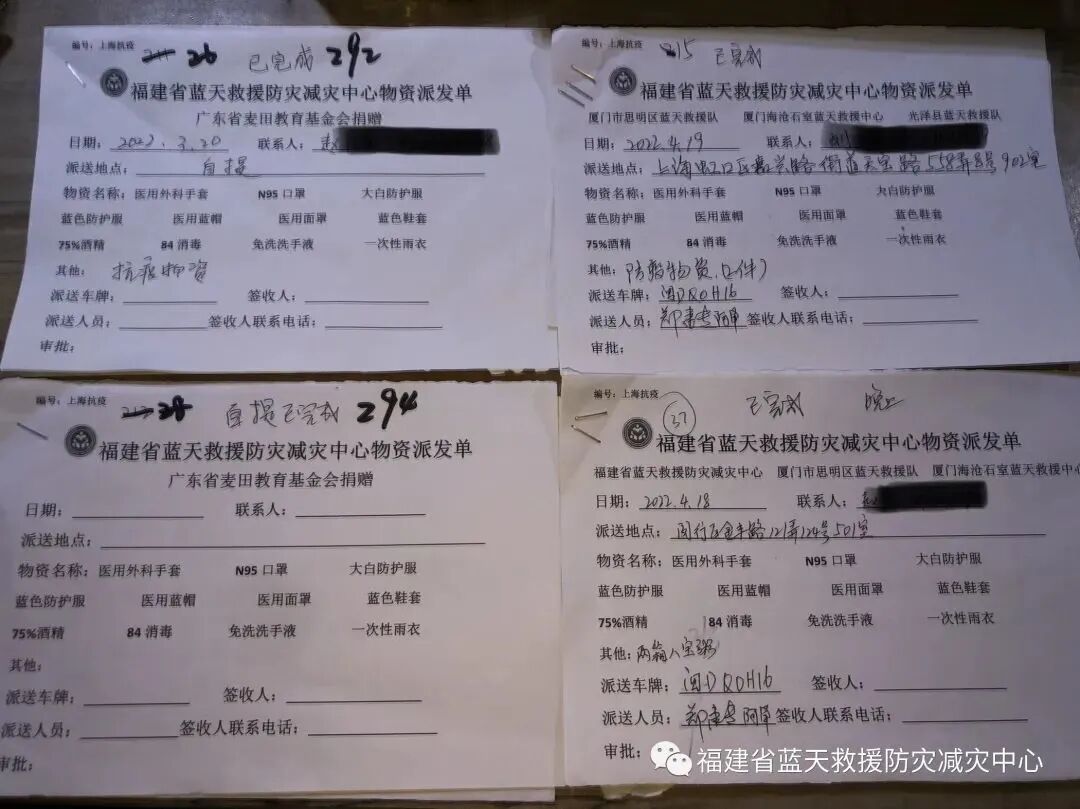 编号：上海抗疫
26 已完成 292
福建省蓝天救援防灾减灾中心物资派发单
广东省麦田教育基金会捐赠
日期：2022.3.20 联系人：赵
派送地点：自提
物资名称：医用外科手套 N95口罩 大白防护服
蓝色防护服 医用蓝帽 医用面罩 蓝色鞋套
75%酒精 84消毒 免洗洗手液 一次性雨衣
其他：抗疫物资
派送车牌： 签收人：
派送人员： 签收人联系电话：
审批：
编号：上海抗疫
215 已完成
福建省蓝天救援防灾减灾中心物资派发单
厦门市思明区蓝天救援队 厦门海沧石室蓝天救援中心 光泽县蓝天救援队
日期：2022.4.19 联系人：
派送地点：上海虹口区嘉兴路街道天宝路558弄8号902室
物资名称：医用外科手套 N95口罩 大白防护服
蓝色防护服 医用蓝帽 医用面罩 蓝色鞋套
75%酒精 84消毒 免洗洗手液 一次性雨衣
其他：防疫物资
派送车牌：闽DQ0H16 签收人：
派送人员：郑 签收人联系电话：
审批：
编号：上海抗疫
28 自提已完成 294
福建省蓝天救援防灾减灾中心物资派发单
广东省麦田教育基金会捐赠
日期： 联系人：
派送地点：
物资名称：医用外科手套 N95口罩 大白防护服
蓝色防护服 医用蓝帽 医用面罩 蓝色鞋套
75%酒精 84消毒 免洗洗手液 一次性雨衣
其他：
派送车牌： 签收人：
派送人员： 签收人联系电话：
审批：
编号：上海抗疫
37 已完成 晚上
福建省蓝天救援防灾减灾中心物资派发单
福建省蓝天救援防灾减灾中心 厦门市思明区蓝天救援队 厦门海沧石室蓝天救援中心
日期：2022.4.18 联系人：赵
派送地点：闵行区金丰路121弄124号501室
物资名称：医用外科手套 N95口罩 大白防护服
蓝色防护服 医用蓝帽 医用面罩 蓝色鞋套
75%酒精 84消毒 免洗洗手液 一次性雨衣
其他：两箱八宝粥
派送车牌：闽DQ0H16 签收人：
派送人员：郑 签收人联系电话：
审批：
福建省蓝天救援防灾减灾中心